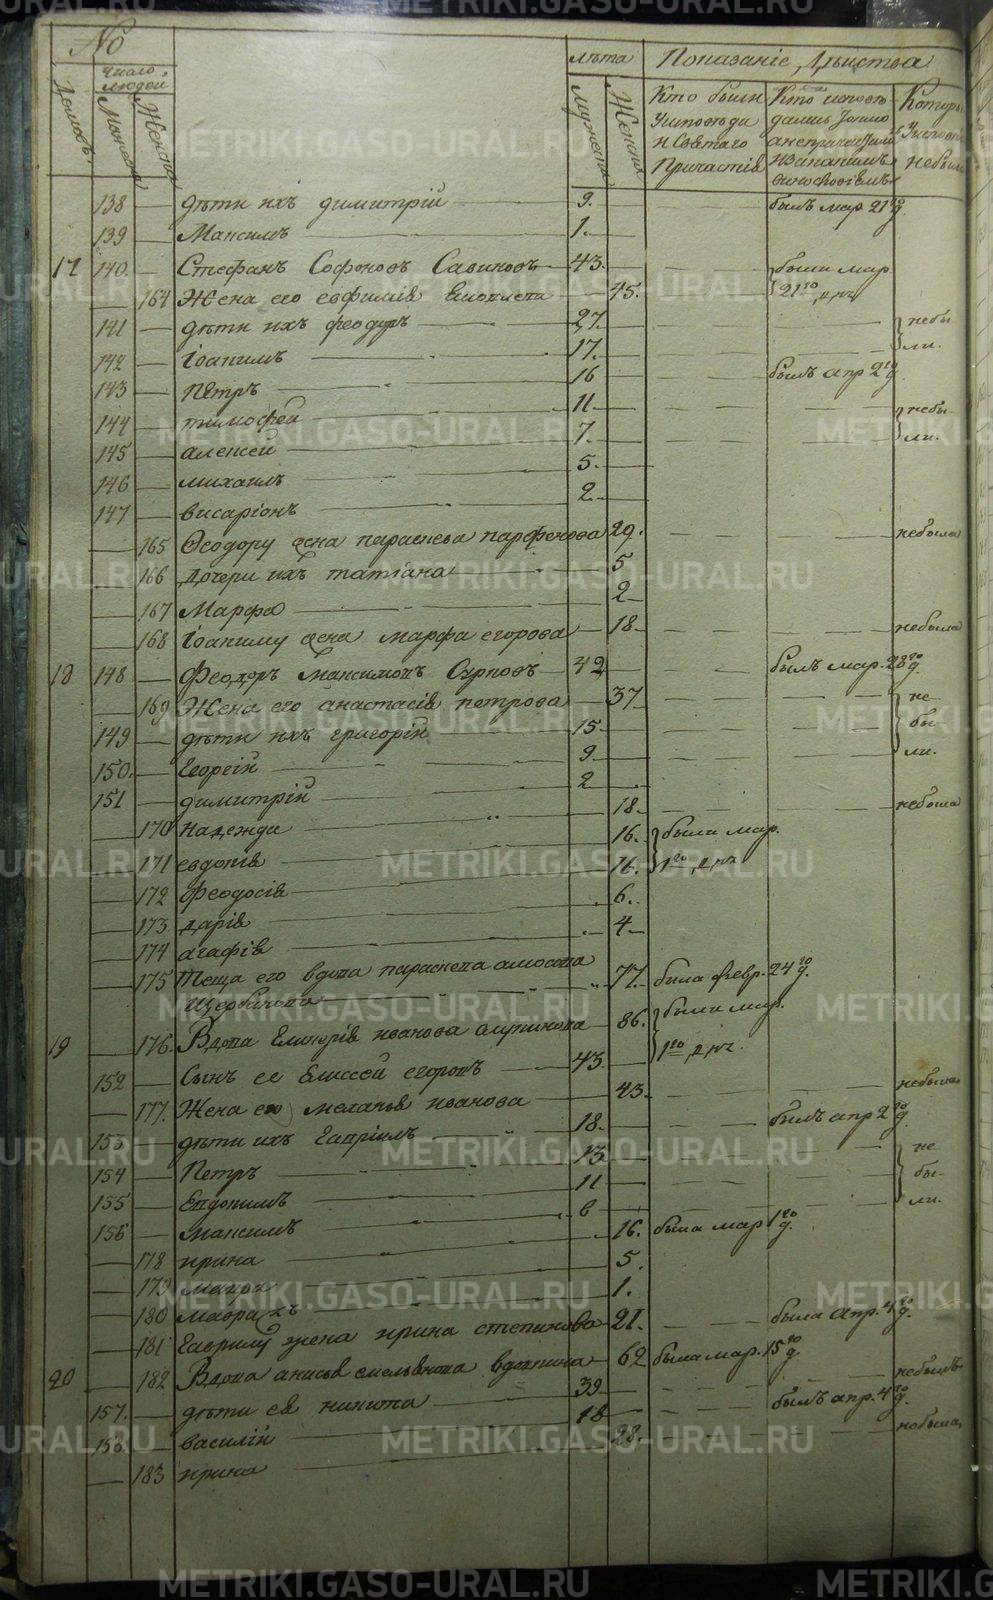 №
Домовъ.
Число людей
Мужеска
Женска
лѣта
Мужеска
Женска
Показаніе Дѣйства
Кто были у исповѣди и Святаго Причастія
Кто исповѣдались
Которые у исповѣди небыли
138 — дѣти ихъ димитрій — 9. — былъ мар 21го д.
139 — Максимъ — 1.
17 140. — Стефанъ Софоновъ Савиновъ — 43. — были мар
— 164 Жена его евфимія — 45. — 21го
141 — дѣти ихъ феодоръ — 27. — небы
142 — Іоакимъ — 17. — ли.
143 — Пётръ — 16 — былъ апр 2го д.
144 — тимофей — 11 — небы-
145 — алексей — 7. — ли.
146 — михаилъ — 5.
147 — висаріонъ — 2.
— 165 Феодору жена параскева парфенова 29. — небыла
— 166 дочери ихъ татіана — 5
— 167 Марфа — 2
— 168 Іоакиму жена марфа егорова — 18. — небыла
18 148 — Феодоръ Максимовъ — 42 — былъ мар. 28го д.
— 169 Жена его анастасія петрова — 37 — не-
149 — дѣти ихъ григорій — 15 — бы-
150. — Егоргій — 9. — ли.
151 — димитрій — 2
— 170 надежда — 18. — небыла
— 171 евдокія — 16. были мар.
— 172 феодосія — 11. 1го
— 173 дарія — 6.
— 174 агафія — 4
— 175 Теща его вдова параскева амосова
Щербакова — 77. была февр. 24го д.
19 — 176. Вдова иванова — 86. были мар.
152 — Сынъ ее Елисей егоровъ — 43. 1го
— 177. Жена его меланья иванова — 43. — небыла
153 — дѣти ихъ Гавріилъ — 18. — былъ апр 2го д.
154 — Петръ — 13 — не-
155 — Евдокимъ — 11 — бы-
156 — максимъ — 6 — ли.
— 178 ирина — 16. была мар 1го д.
— 179 мавра — 5.
— 180 мавра — 1.
— 181 Гаврилу жена ирина степанова 21. — была апр. 4го д.
20 — 182 Вдова анисья емельянова — 62 была мар. 15го д.
157. — дѣти ея никита — 39 — небылъ
158. — василій — 18 — былъ апр. 4го д.
— 183 ирина — 28. — небыла
METRIKI.GASO-URAL.RU